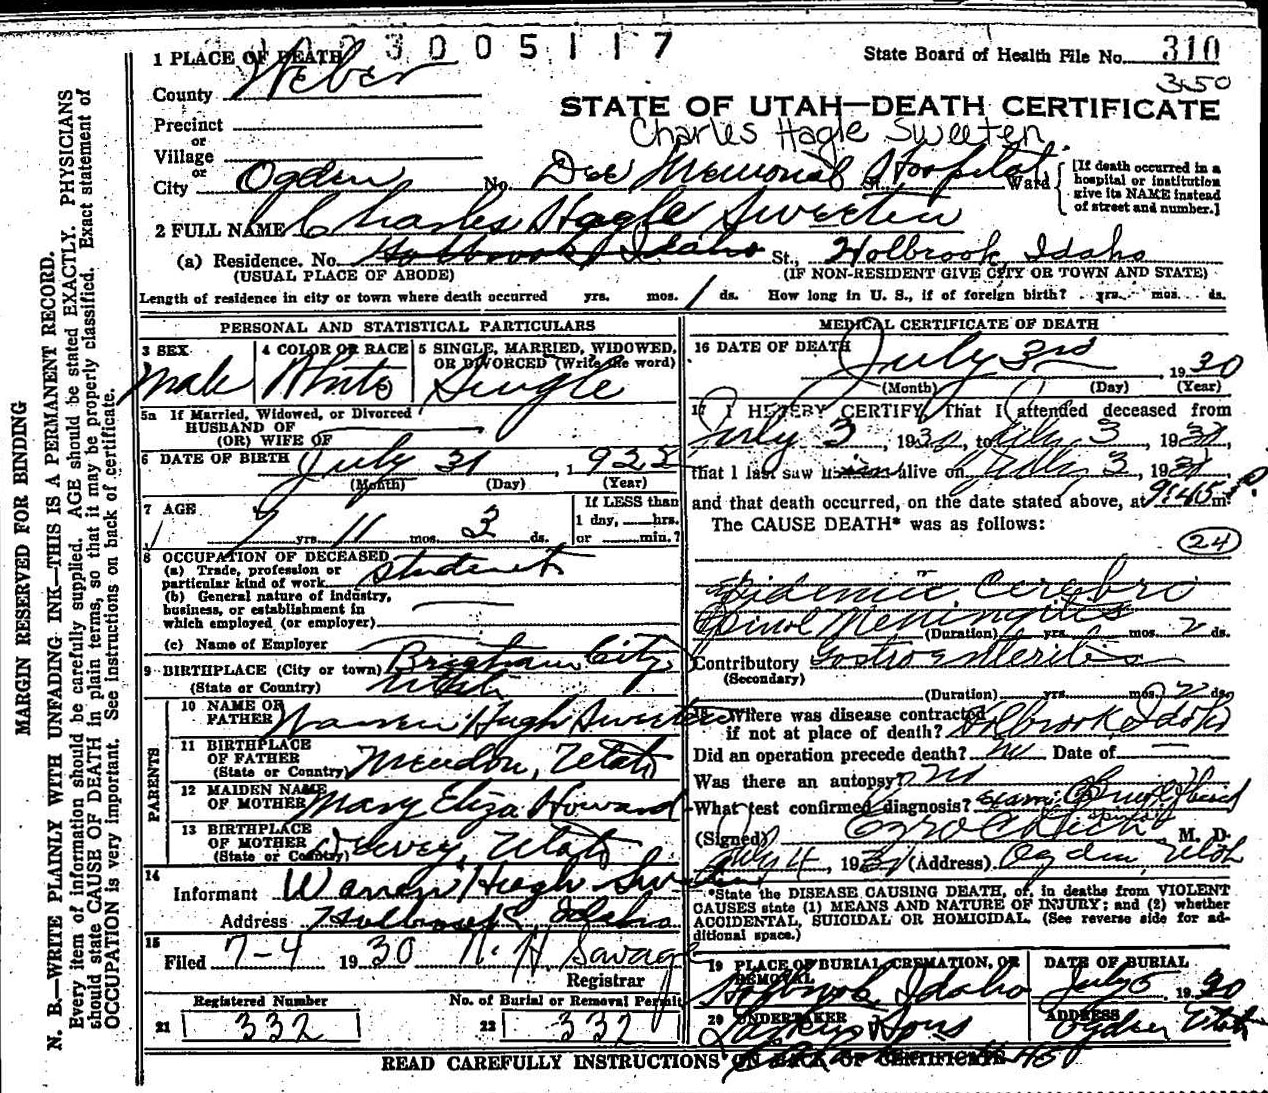 3005117
1 PLACE OF DEATH
State Board of Health File No. 310
350
County Weber
STATE OF UTAH—DEATH CERTIFICATE
Precinct
Charles Hagle Sweeten
or
Village
or
City Ogden No. Dee Memorial Hospital St. Ward
[If death occurred in a hospital or institution give its NAME instead of street and number.]
2 FULL NAME Charles Hagle Sweeten
(a) Residence. No. Holbrook, Idaho St., Holbrook, Idaho
(USUAL PLACE OF ABODE) (IF NON-RESIDENT GIVE CITY OR TOWN AND STATE)
Length of residence in city or town where death occurred yrs. mos. 1 ds. How long in U. S., if of foreign birth? yrs. mos. ds.
PERSONAL AND STATISTICAL PARTICULARS
3 SEX
Male
4 COLOR OR RACE
White
5 SINGLE, MARRIED, WIDOWED,
OR DIVORCED (Write the word)
Single
5a If Married, Widowed, or Divorced
HUSBAND OF
(OR) WIFE OF
6 DATE OF BIRTH July 31, 1922
(Month) (Day) (Year)
7 AGE
7 yrs. 11 mos. 3 ds.
If LESS than
1 day, hrs.
or min.?
8 OCCUPATION OF DECEASED
(a) Trade, profession or
particular kind of work student
(b) General nature of industry,
business, or establishment in
which employed (or employer)
(c) Name of Employer
9 BIRTHPLACE (City or town) Brigham City
(State or Country) Utah
PARENTS
10 NAME OF
FATHER Warren Hugh Sweeten
11 BIRTHPLACE
OF FATHER
(State or Country) Mendon, Utah
12 MAIDEN NAME
OF MOTHER Mary Eliza Howard
13 BIRTHPLACE
OF MOTHER
(State or Country) Dewey, Utah
14
Informant Warren Hugh Sweeten
Address Holbrook Idaho
15
Filed 7-4 1930 N. H Savage
Registrar
Registered Number
21 332
No. of Burial or Removal Permit
22 332
MEDICAL CERTIFICATE OF DEATH
16 DATE OF DEATH July 3rd 1930
(Month) (Day) (Year)
17 I HEREBY CERTIFY, That I attended deceased from
July 3, 1930, to July 3, 1930,
that I last saw him alive on July 3, 1930,
and that death occurred, on the date stated above, at 9:45 P m.
The CAUSE DEATH* was as follows:
24
Epidemic Cerebro
Spinol Meningitis
(Duration) yrs. mos. 2 ds.
Contributory Gastroenteritis
(Secondary)
(Duration) yrs. mos. 2 ds.
18 Where was disease contracted
if not at place of death? Holbrook, Idaho
Did an operation precede death? no Date of
Was there an autopsy? No
What test confirmed diagnosis? Exam. Spinal fluid
(Signed) M. D.
July 4, 1930 (Address) Ogden, Utah
*State the DISEASE CAUSING DEATH, or, in deaths from VIOLENT
CAUSES state (1) MEANS AND NATURE OF INJURY; and (2) whether
ACCIDENTAL, SUICIDAL OR HOMICIDAL. (See reverse side for ad-
ditional space.)
19 PLACE OF BURIAL, CREMATION, OR
REMOVAL
Holbrook, Idaho
DATE OF BURIAL
July 5 1930
20 UNDERTAKER
Larkin & Sons
ADDRESS
Ogden Utah
450
READ CAREFULLY INSTRUCTIONS ON BACK OF CERTIFICATE
MARGIN RESERVED FOR BINDING
N. B.—WRITE PLAINLY WITH UNFADING INK—THIS IS A PERMANENT RECORD.
Every item of information should be carefully supplied. AGE should be stated EXACTLY. PHYSICIANS
should state CAUSE OF DEATH in plain terms, so that it may be properly classified. Exact statement of
OCCUPATION is very important. See instructions on back of certificate.